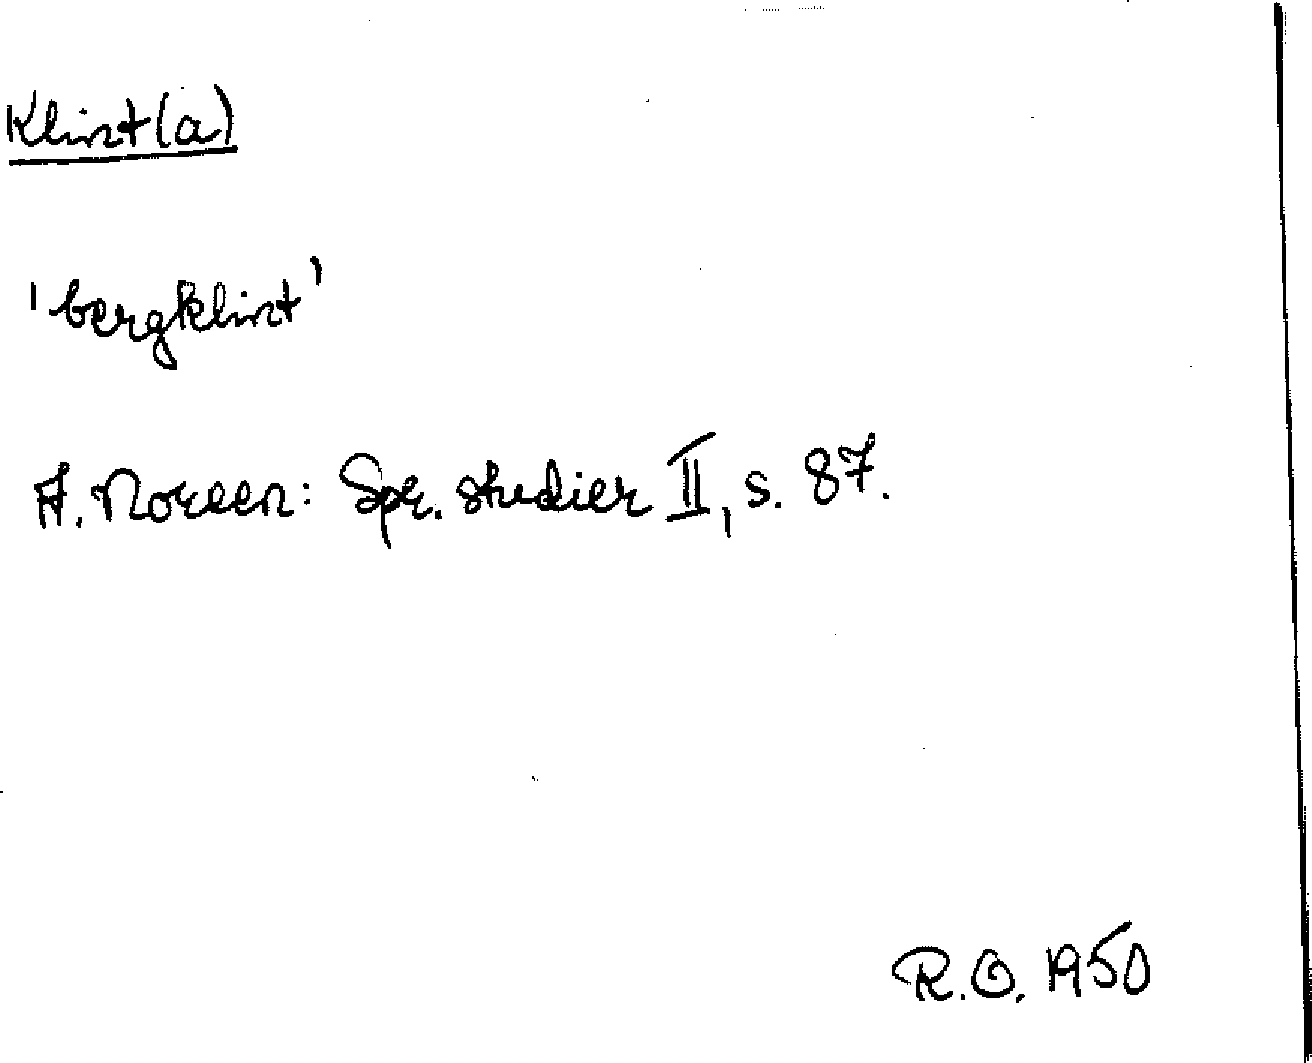 Klint(a)
'bergklint'
A. Noreen: Spr. studier II, s. 87.
R.O. 1950